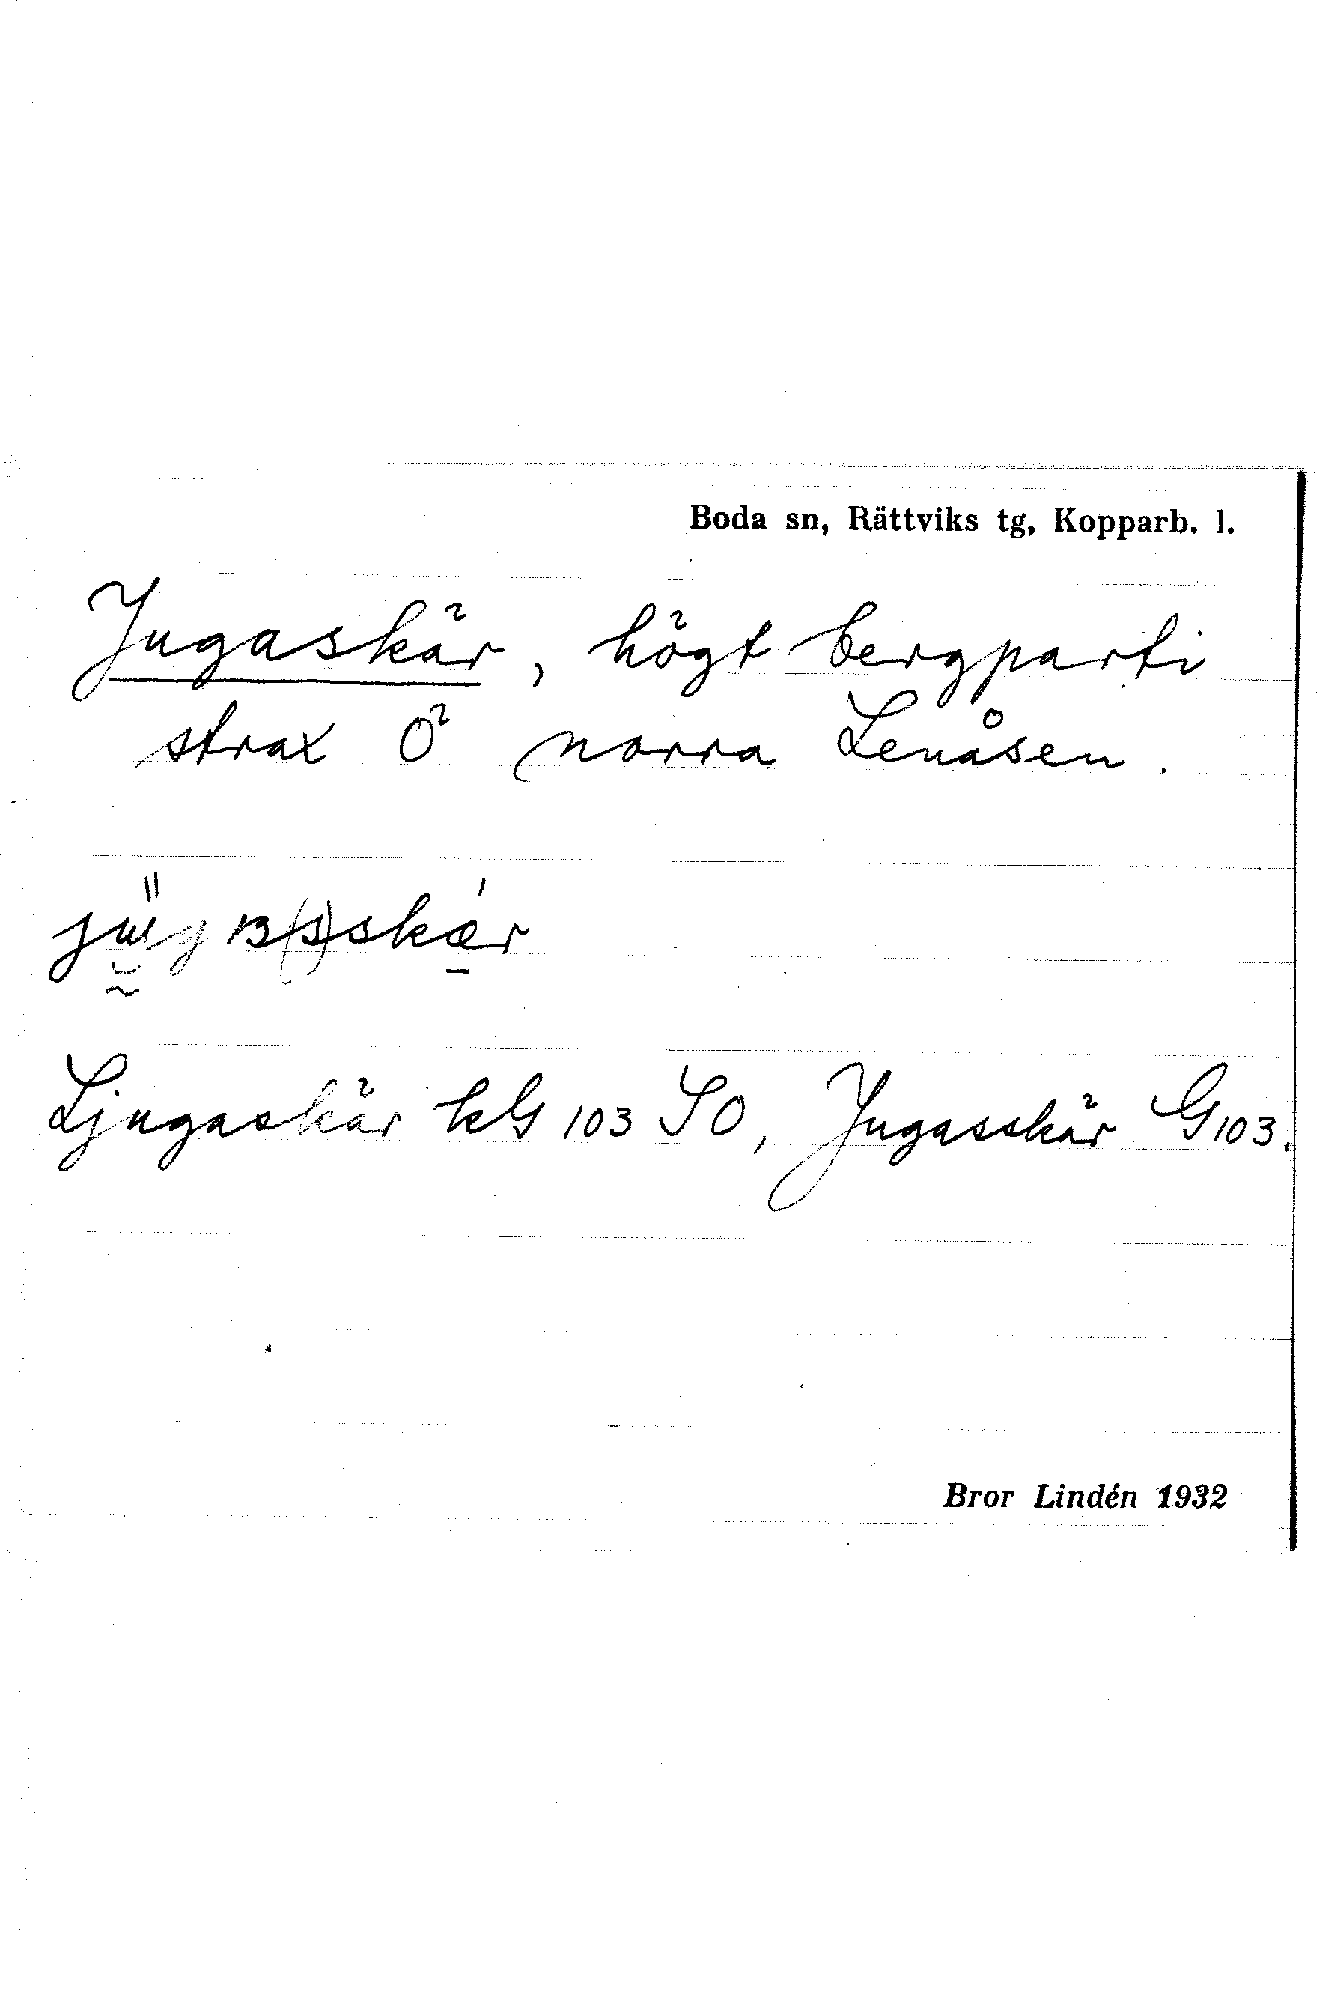 Boda sn, Rättviks tg, Kopparb. l.
Jugaskär, högt bergparti
strax Ö norra Lenåsen.
Ljugaskär kG 103 SO, Jugasskär G103.
Bror Lindén 1932